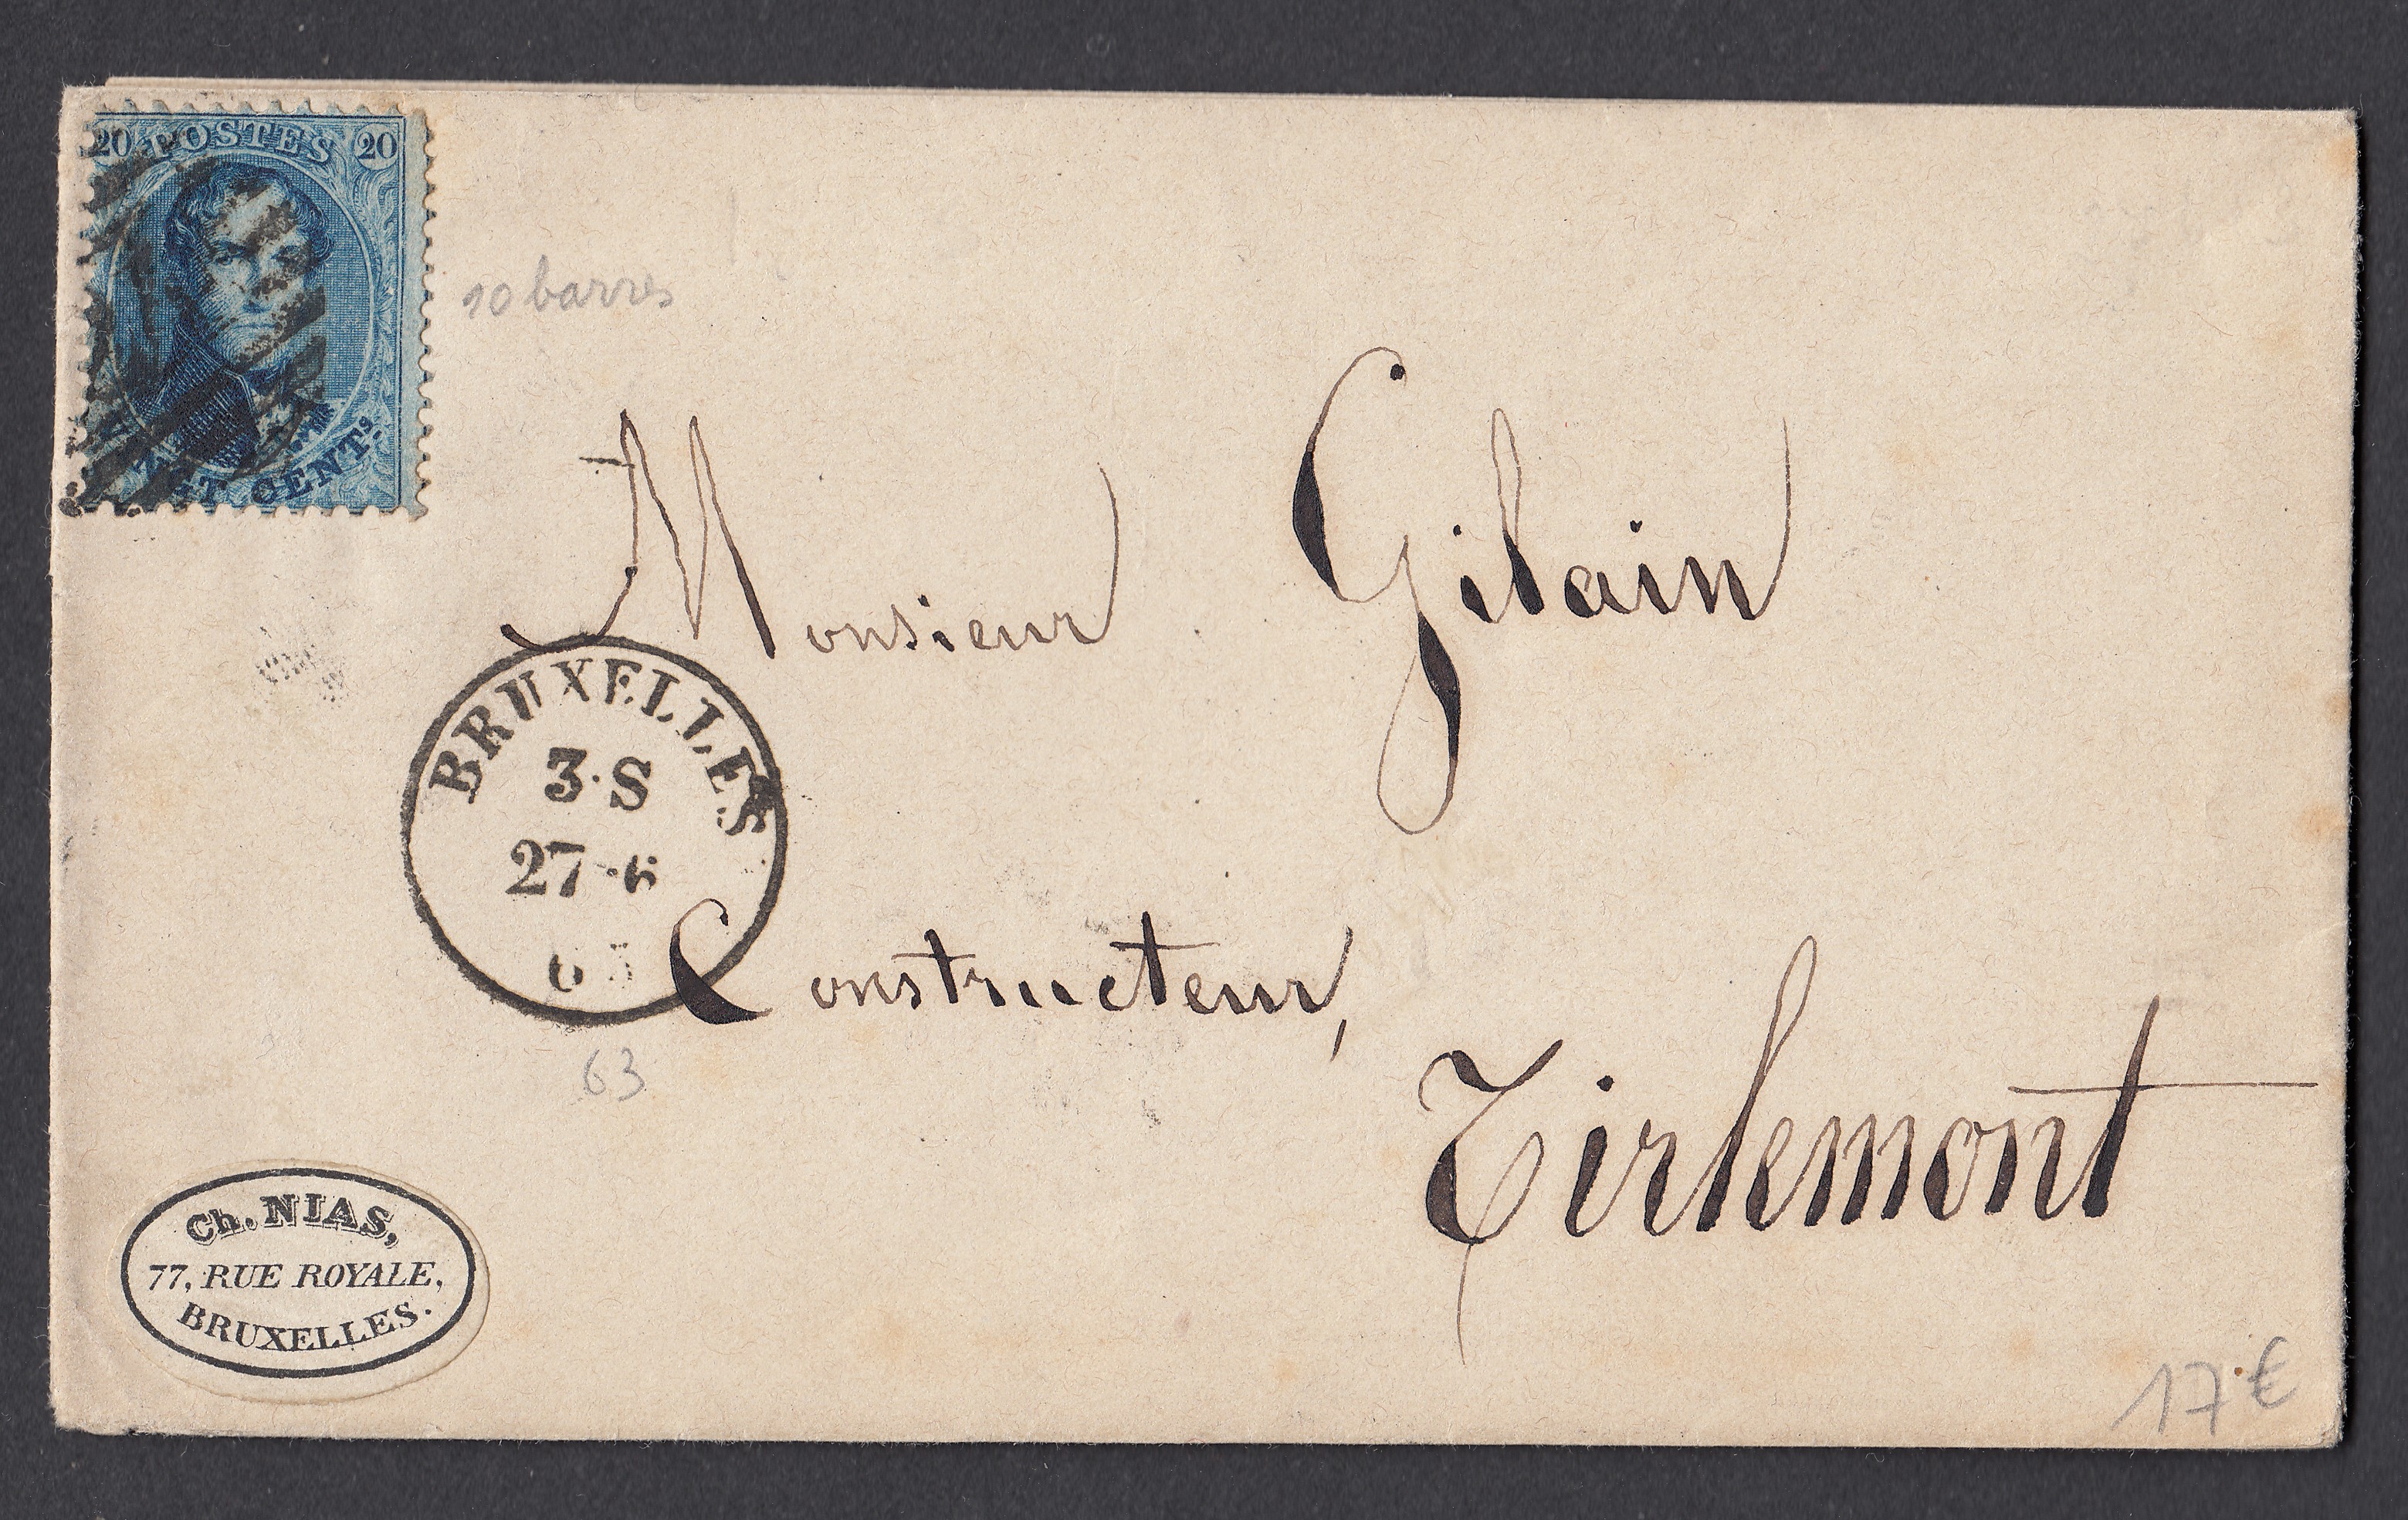 20 POSTES 20
CENTS
10 barres
Monsieur Gilain
BRUXELLES
3·S
27-6
63
Constructeur,
63
Tirlemont
Ch. NIAS,
77, RUE ROYALE,
BRUXELLES.
17 €